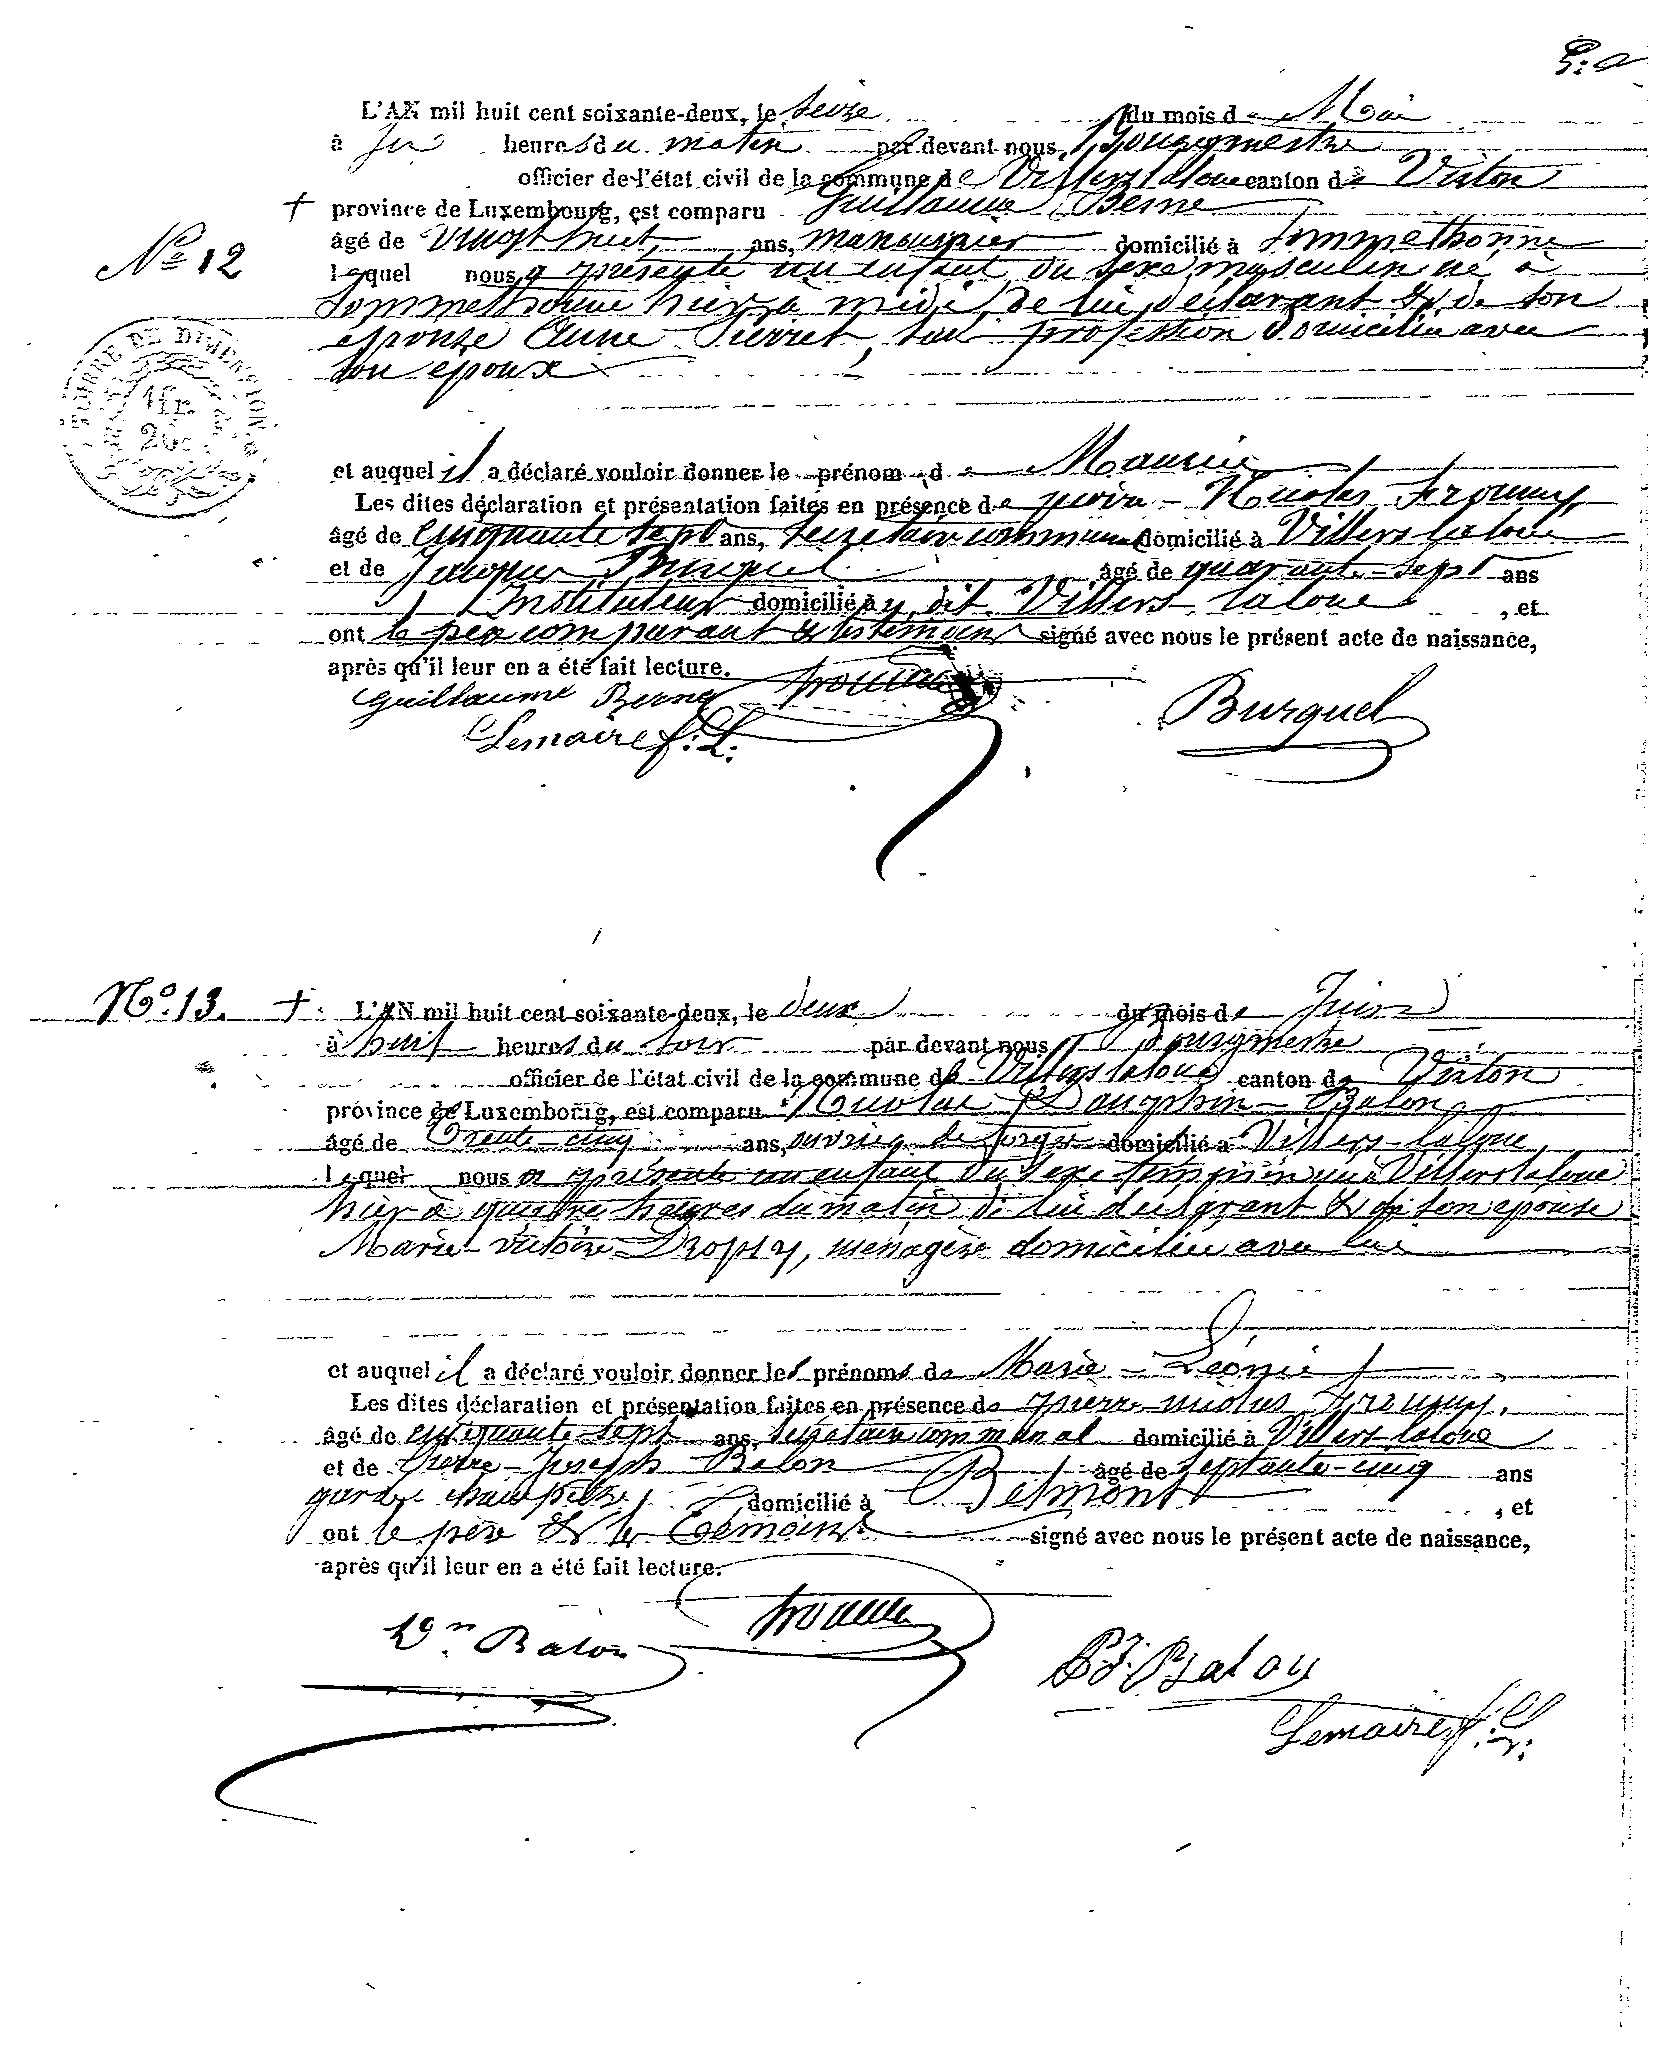 L'AN mil huit cent soixante-deux, le seize du mois de Mai
à six heures du matin par devant nous Bourgmestre
officier de l'état civil de la commune de Villers laloue canton de Virton
+ province de Luxembourg, est comparu Guillaume Berne
Nº 12
âgé de vingt huit ans, manouvrier domicilié à Sommethonne
lequel nous a présenté un enfant du sexe masculin né à
Sommethonne hier à midi, de lui déclarant & de son
épouse Anne Pierret, sans profession domiciliée avec
son époux
TIMBRE DE DIMENSION
1 fr.
20c.
et auquel il a déclaré vouloir donner le prénom de Maurice
Les dites déclaration et présentation faites en présence de pierre - Nicolas
âgé de cinquante sept ans, secrétaire communal domicilié à Villers laloue
et de Jacques Burquel âgé de quarante-sept ans
Instituteur domicilié à dit Villers laloue, et
ont le père comparant & les témoins signé avec nous le présent acte de naissance,
après qu'il leur en a été fait lecture.
Guillaume Berne
Burquel
Lemaire f: L:
Nº. 13. + L'AN mil huit cent soixante-deux, le deux du mois de Juin
à huit heures du soir par devant nous Bourgmestre
officier de l'état civil de la commune de Villers laloue canton de Virton
province de Luxembourg, est comparu Nicolas Dauphin - Balon
âgé de Trente-cinq ans, ouvrier de forge domicilié à Villers-laloue
lequel nous a présenté un enfant du sexe féminin né à Villers laloue
hier à quatre heures du matin de lui déclarant & de son épouse
Marie-victoire Dropsy, ménagère domiciliée avec lui
et auquel il a déclaré vouloir donner les prénoms de Marie - Léonie
Les dites déclaration et présentation faites en présence de pierre nicolas
âgé de cinquante-sept ans, secrétaire communal domicilié à Villers-laloue
et de Pierre-Joseph Balon âgé de septante-cinq ans
garde champêtre domicilié à Belmont, et
ont le père & les Témoins signé avec nous le présent acte de naissance,
après qu'il leur en a été fait lecture.
Balon
PJ. Balon
Lemaire f: L: